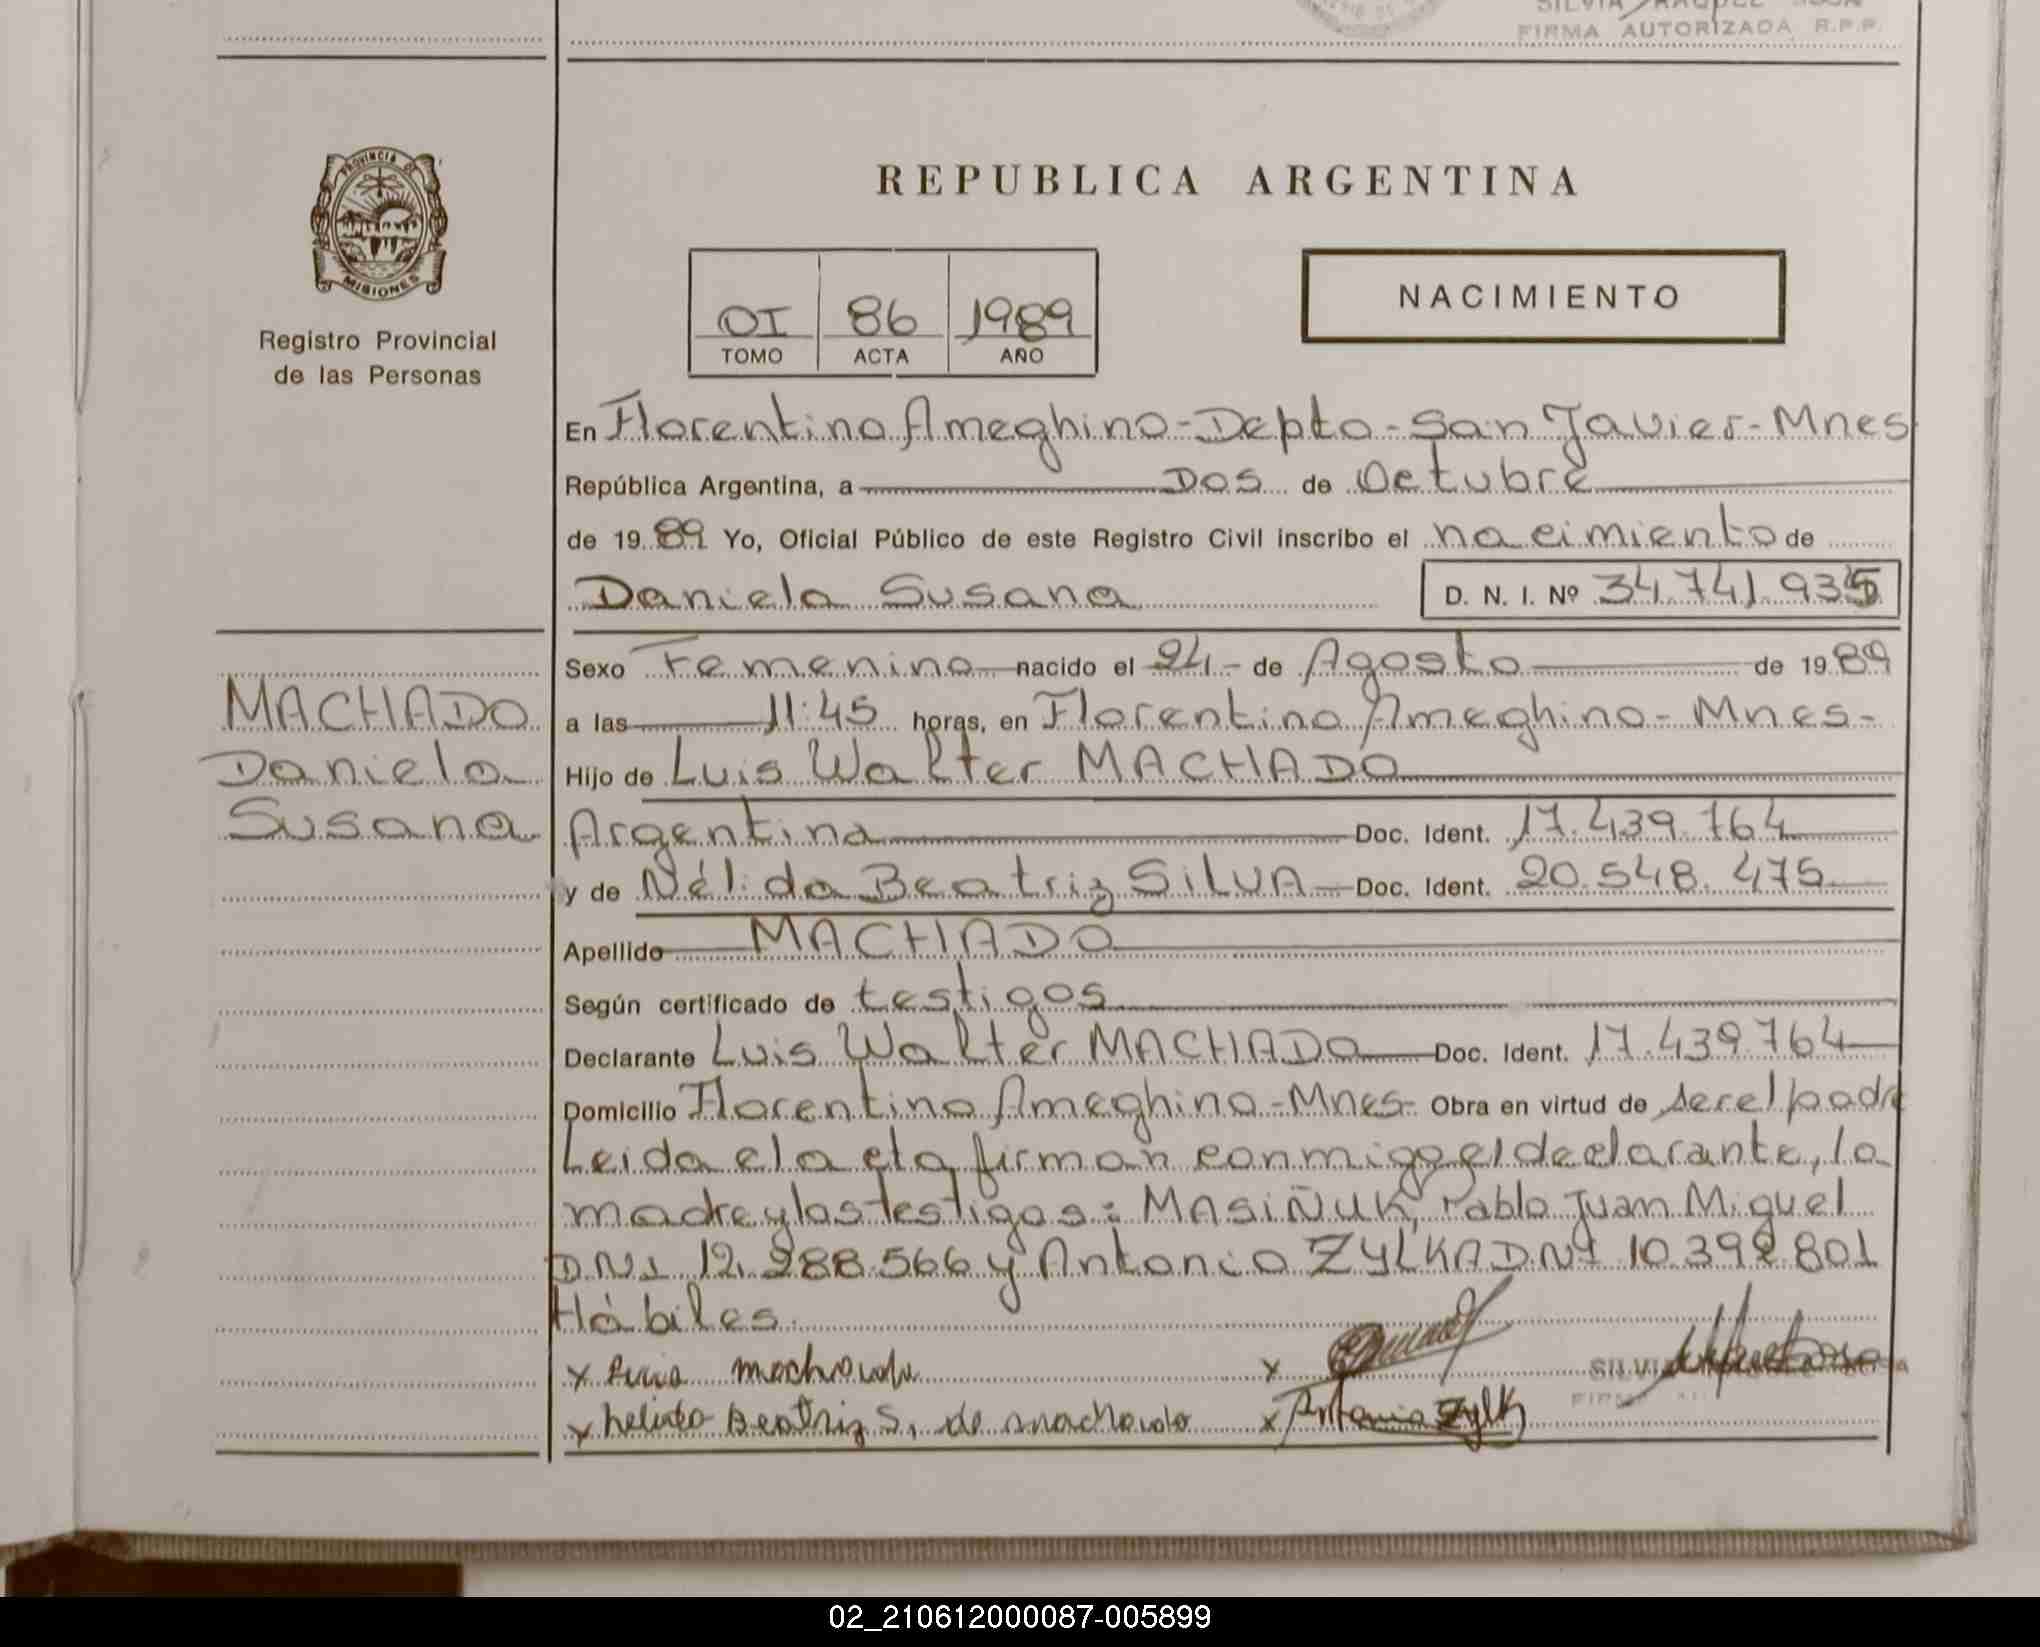 SILVIA RAQUEL SOSA
FIRMA AUTORIZADA R.P.P.
PROVINCIA DE
MISIONES
Registro Provincial
de las Personas
REPUBLICA ARGENTINA
OI 86 1989
TOMO ACTA AÑO
NACIMIENTO
En Florentino Ameghino-Depto-San Javier-Mnes
República Argentina, a Dos de Octubre
de 19 89 Yo, Oficial Público de este Registro Civil inscribo el nacimiento de
Daniela Susana D. N. I. Nº 34.741.935
MACHADO
Daniela
Susana
Sexo Femenino nacido el 24- de Agosto de 19 89
a las 11:45 horas, en Florentino Ameghino-Mnes-
Hijo de Luis Walter MACHADO
Argentina Doc. Ident. 17.439.764
y de Nélida Beatriz SILVA Doc. Ident. 20.548.475
Apellido MACHADO
Según certificado de testigos
Declarante Luis Walter MACHADO Doc. Ident. 17.439.764
Domicilio Florentino Ameghino-Mnes- Obra en virtud de ser el padre
Leida el acta firman conmigo el declarante, la
madre y los testigos: MASIÑUK, Pablo Juan Miguel
D.N.I 12.288.566 y Antonio ZYLKA D.N.I 10.392.801
Hábiles.
x Luis Machado x
x Nelida Beatriz S. de Machado x Antonio Zylk
SILVIA
FIRMA
02_210612000087-005899